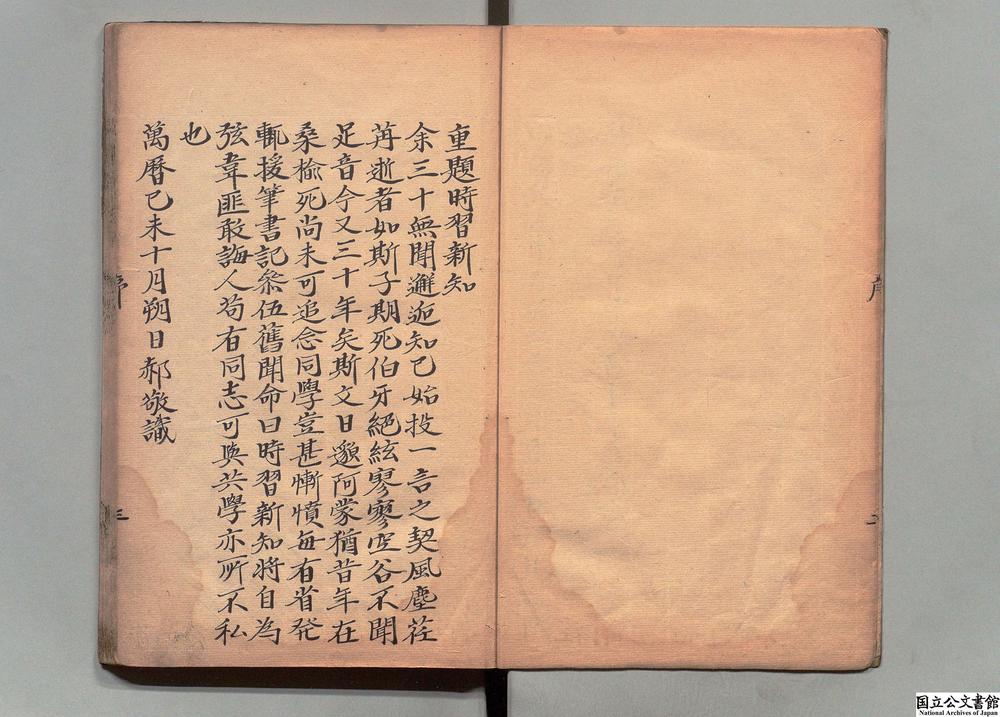 重題時習新知
余三十無聞邂逅知己始投一言之契風塵荏
苒逝者如斯子期死伯牙絕絃寥寥空谷不聞
足音今又三十年矣斯文日邈阿蒙猶昔年在
桑榆死尚未可追念同學豈甚慚憤每有省發
輒援筆書記叅伍舊聞命曰時習新知將自為
弦韋匪敢誨人苟有同志可與共學亦所不私
也
萬曆己未十月朔日郝敬識
序
三
国立公文書館
National Archives of Japan